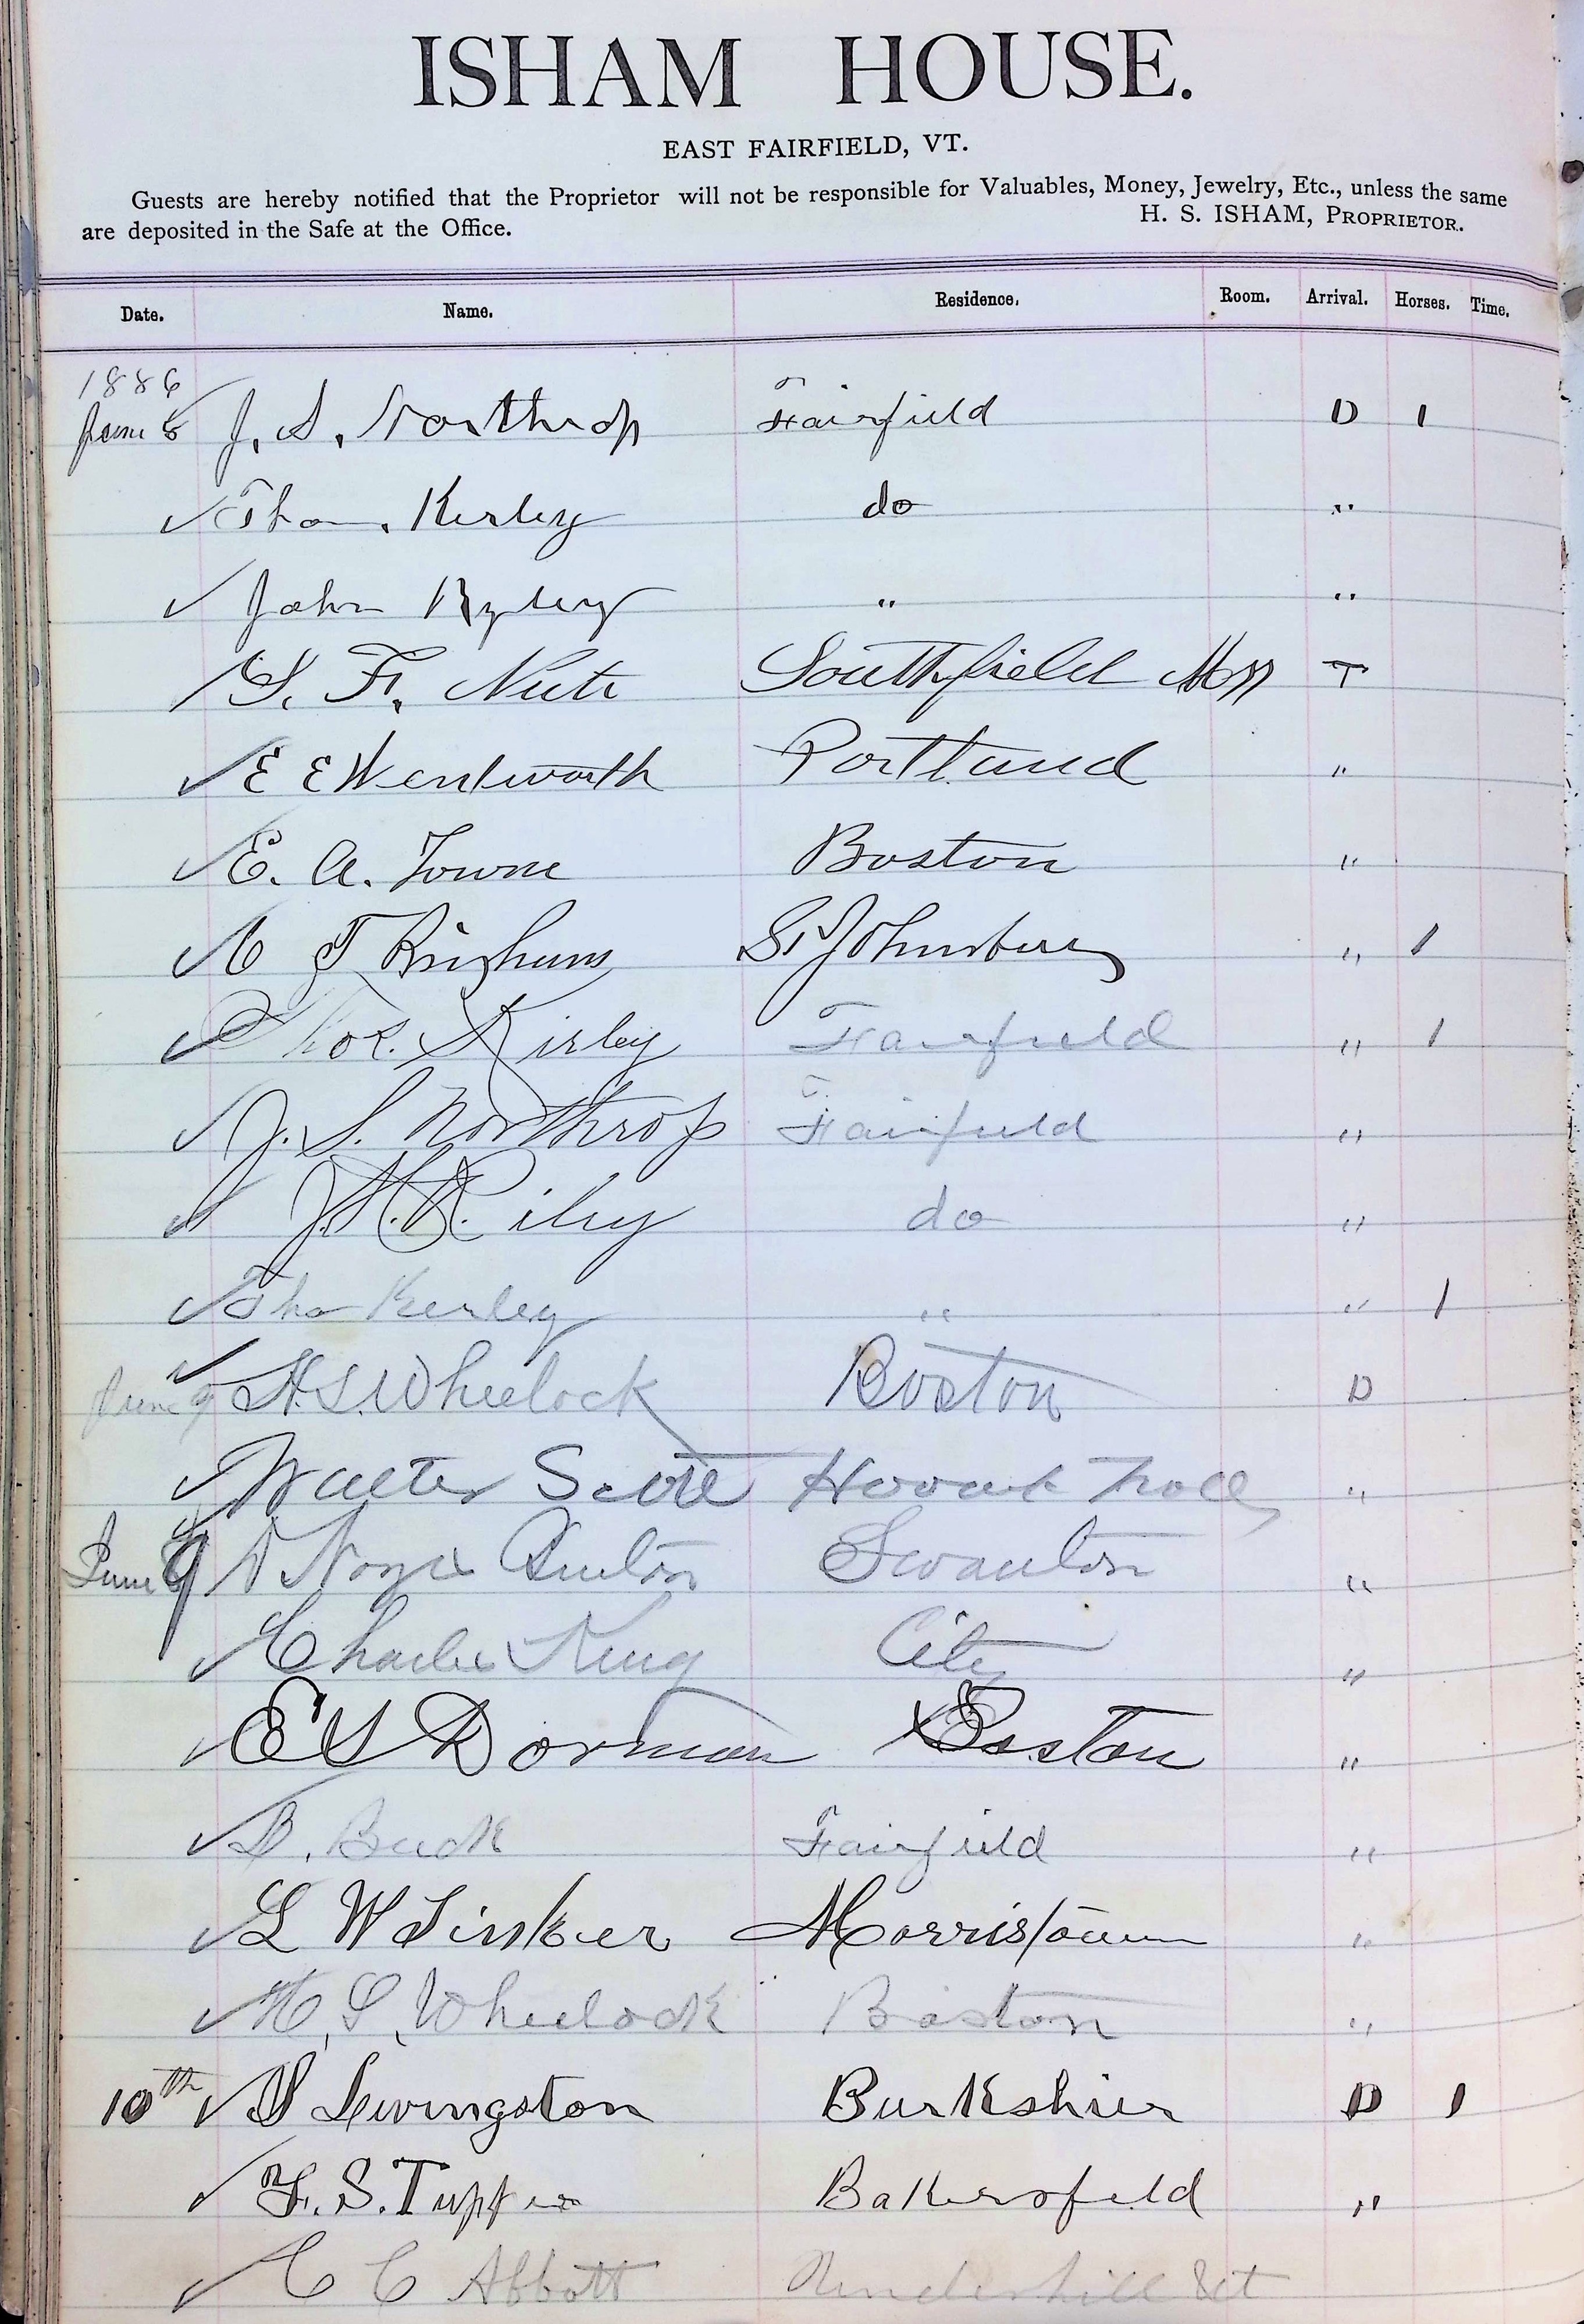 ISHAM HOUSE.
EAST FAIRFIELD, VT.
Guests are hereby notified that the Proprietor will not be responsible for Valuables, Money, Jewelry, Etc., unless the same
are deposited in the Safe at the Office. H. S. ISHAM, PROPRIETOR.
Date. Name. Residence. Room. Arrival. Horses. Time.
1886
June 8 J. S. Northrop Fairfield D 1
✓ Kerley do "
✓ John " "
✓ S. F. Nute Southfield Mass T
✓ E E Wentworth Portland "
✓ E. A. Towne Boston "
✓ C T Brigham St Johnsbury " 1
✓ Thos. Kirley Fairfield " 1
✓ J. S. Northrop Fairfield "
✓ J. H. Riley do "
✓ Tho Kerley " " 1
June 9 ✓ H. S. Wheelock Boston D
✓ Walter Scott "
June 9 Swanton "
✓ Charles King City "
✓ E S Dorman Boston "
✓ B. Buck Fairfield "
✓ L W Tinker Morristown "
✓ H. S. Wheelock Boston "
10th ✓ S Livingston Burkshier D 1
✓ F. S. Tupper Bakersfield "
✓ C C Abbott Underhill